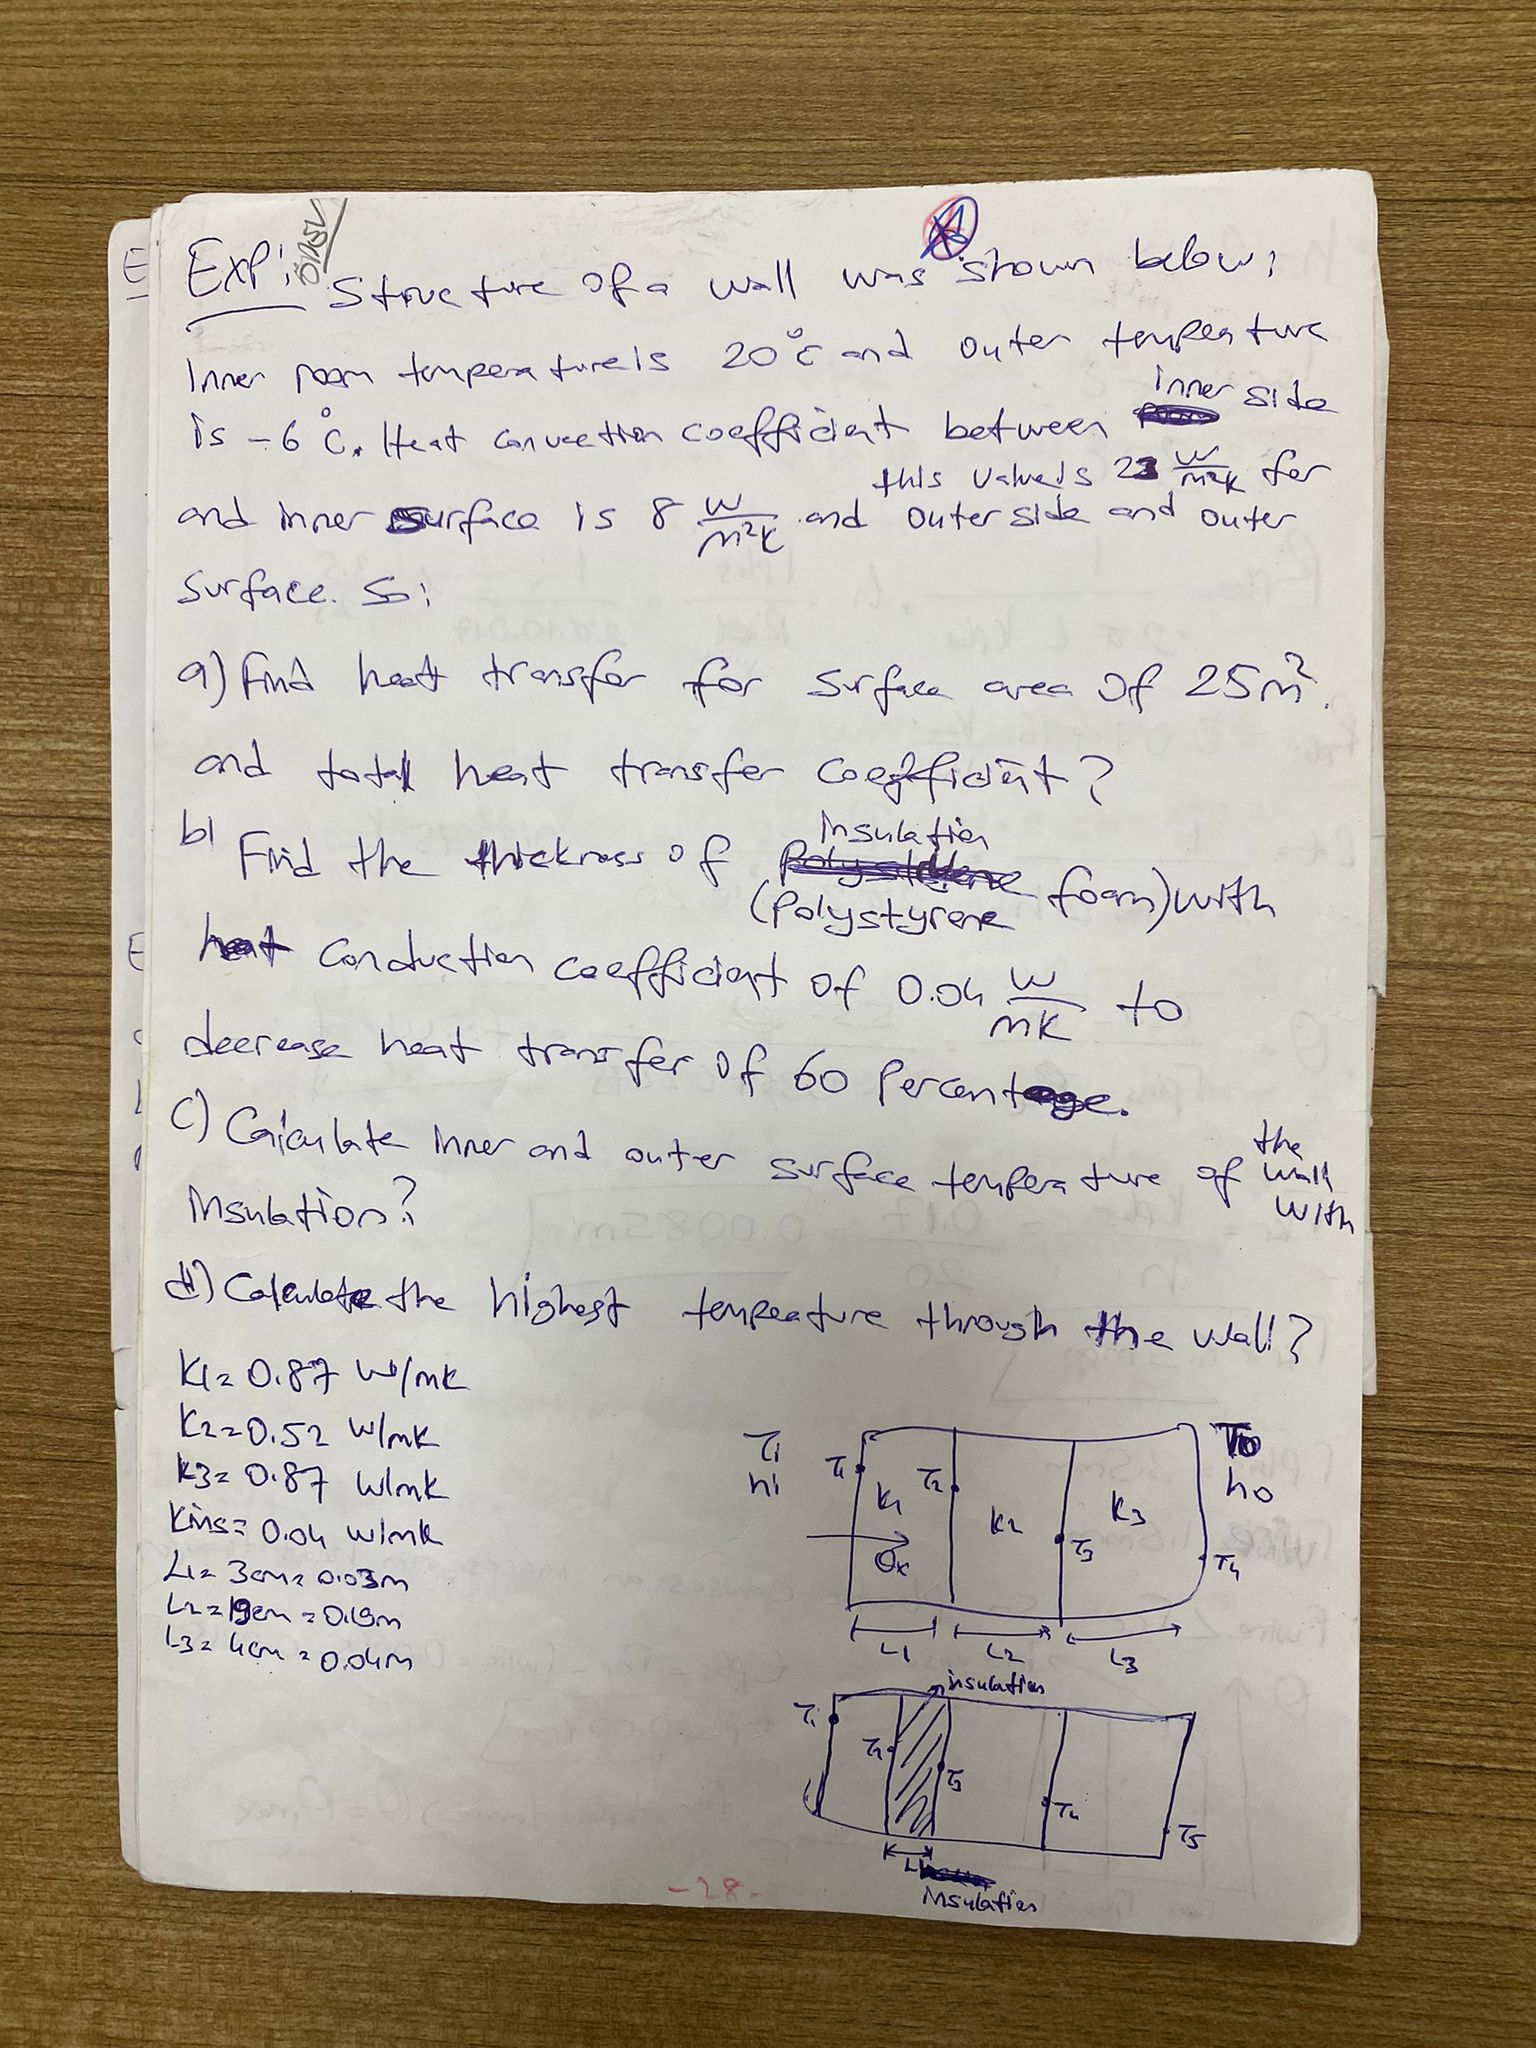 Exp:
Structure of a wall was shown below:
Inner room temperature is 20°C and outer temperature
is -6°C. Heat convection coefficient between inner side
and inner surface is 8 W/m²K and this value is 23 W/m²K for
outer side and outer
surface. So:
a) Find heat transfer for surface area of 25m².
and total heat transfer coefficient?
b) Find the thickness of insulation
(polystyrene foam) with
heat conduction coefficient of 0.04 W/mK to
decrease heat transfer of 60 percentage.
c) Calculate inner and outer surface temperature of the wall with
insulation?
d) Calculate the highest temperature through the wall?
k1= 0.87 W/mK
k2=0.52 W/mK
k3= 0.87 W/mK
kins= 0.04 W/mK
L1= 3cm= 0.03m
L2=19cm=0.19m
L3= 4cm= 0.04m
Ti
hi
T1
k1
T2
k2
T3
k3
T4
To
ho
Qx
L1
L2
L3
insulation
T1
T2
T3
T4
T5
insulation
-28-